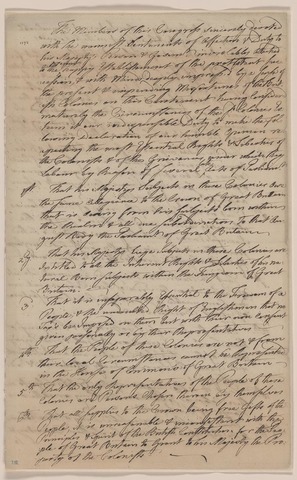 The Members of this Congress sincerely devoted
with the warmest Sentiments of Affection & Duty to
his Majesty's Person & Government inviolably attached
to the happy Establishment of the protestant Suc-
cession, & with Minds deeply impressed by a Sense of
the present & impending Misfortunes of the British
Colonies on this Continent; having considered as
maturely as Time will permit the Circumstances of the said Colonies
esteem it our indispensable Duty, to make the fol-
lowing Declarations of our humble Opinion re-
specting the most Essential Rights & Liberties of
the Colonists & of the Grievances under which they
labour by Reason of several late Acts of Parliament
1st That his Majesty's Subjects in these Colonies owe
the same Allegiance to the Crown of Great Britain
that is owing from his Subjects born within
the Realm & all due Subordination to that Au-
gust Body the Parliament of Great Britain
2d That his Majesty's liege Subjects in these Colonies are
entitled to all the inherent Rights & Liberties of his na-
tural Born Subjects within the Kingdom of Great
Britain
3 That it is inseparably essential to the Freedom of a
People, & the undoubted Right of Englishmen that no
Taxes be imposed on them but with their own consent
given personally or by their Representatives
4th That the People of these Colonies are not & from
their local Circumstances cannot be Represented
in the House of Commons of Great Britain
5th That the only Representatives of the People of these
Colonies are Persons chosen therein by themselves
That all Supplies to the Crown being free Gifts of the
People, it is unreasonable & inconsistent with the
Principles & Spirit of the British Constitution for the Peo-
ple of Great Britain to Grant to his Majesty the Pro-
perty of the Colonists